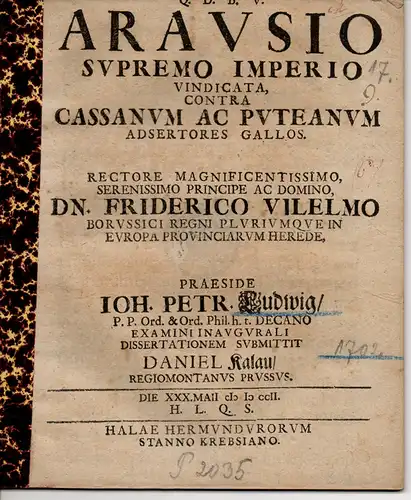 Q. D. B. V.
ARAVSIO
SVPREMO IMPERIO
VINDICATA,
CONTRA
CASSANVM AC PVTEANVM
ADSERTORES GALLOS.
17.
9.
RECTORE MAGNIFICENTISSIMO,
SERENISSIMO PRINCIPE AC DOMINO,
DN. FRIDERICO VILELMO
BORVSSICI REGNI PLVRIVMQVE IN
EVROPA PROVINCIARVM HEREDE,
PRAESIDE
IOH. PETR. Ludwig/
P. P. Ord. & Ord. Phil. h. t. DECANO
EXAMINI INAVGVRALI
DISSERTATIONEM SVBMITTIT
DANIEL Kalau/
1702
REGIOMONTANVS PRVSSVS.
DIE XXX. MAII cIɔ Iɔ ccII.
H. L. Q. S.
HALAE HERMVNDVRORVM
STANNO KREBSIANO.
P 2035